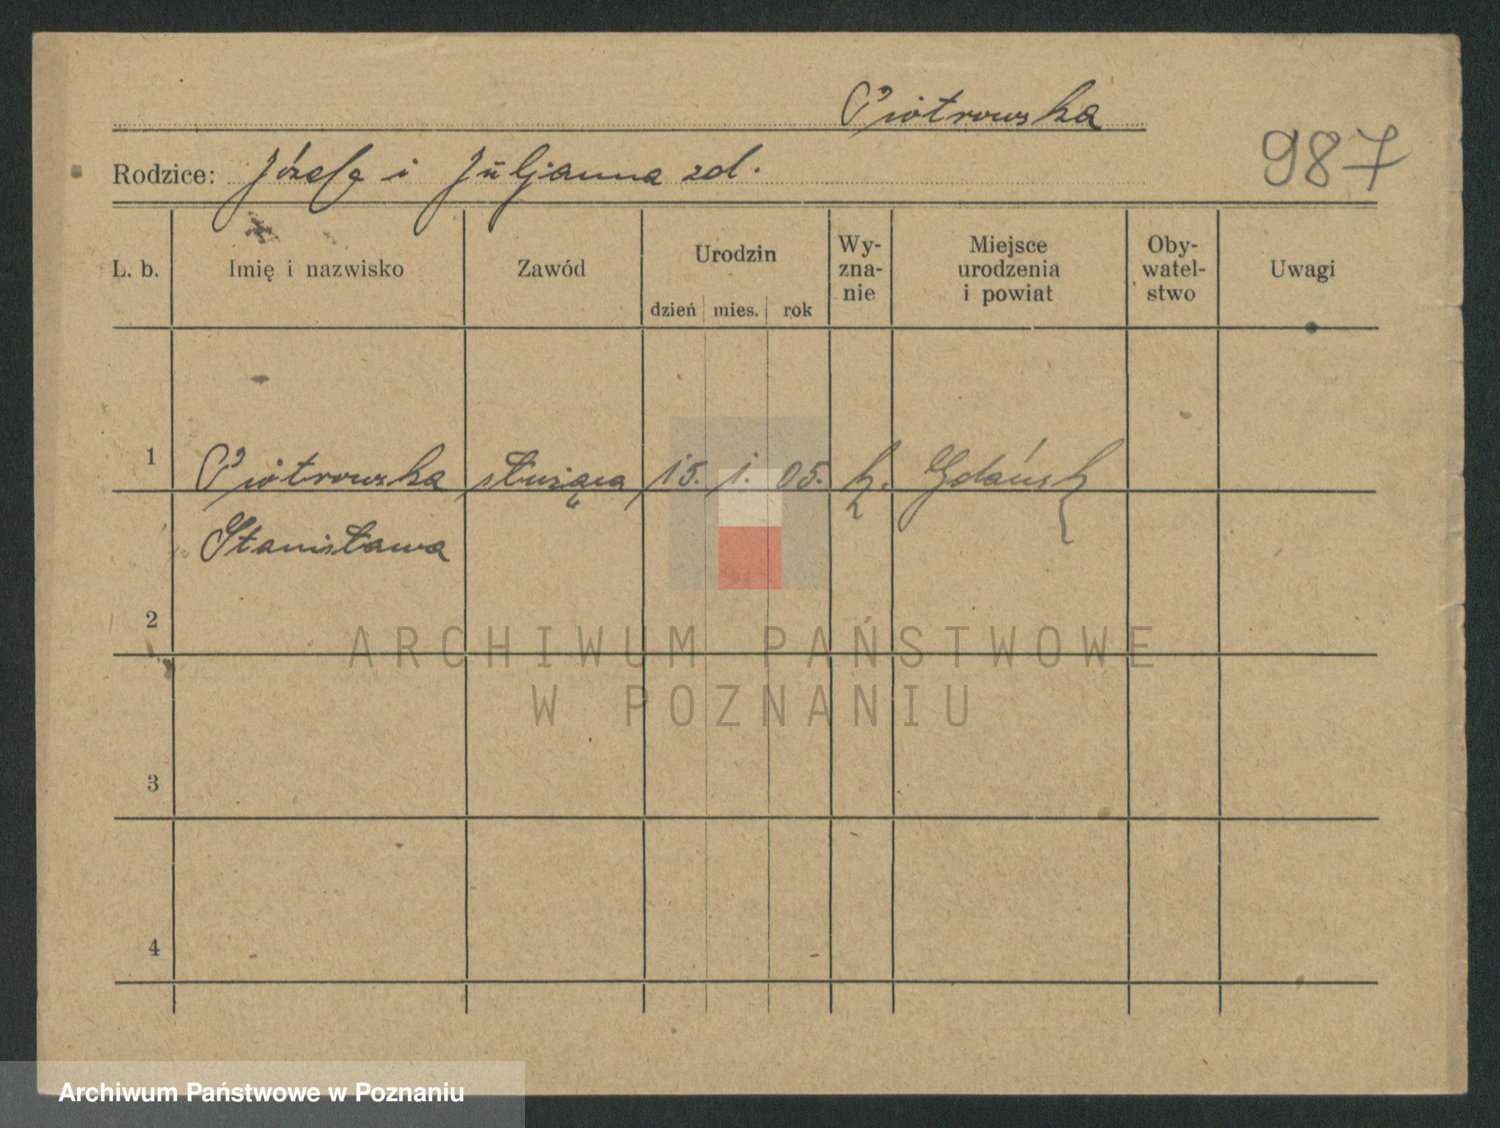 Piotrowska
987
Rodzice: Józefa i Juljanna zd.
L. b. Imię i nazwisko Zawód Urodzin dzień mies. rok Wy- zna- nie Miejsce urodzenia i powiat Oby- watel- stwo Uwagi
1 Piotrowska służąca 15. 1. 05. k. Gdańsk
Stanisława
2
ARCHIWUM PAŃSTWOWE
W POZNANIU
3
4
Archiwum Państwowe w Poznaniu